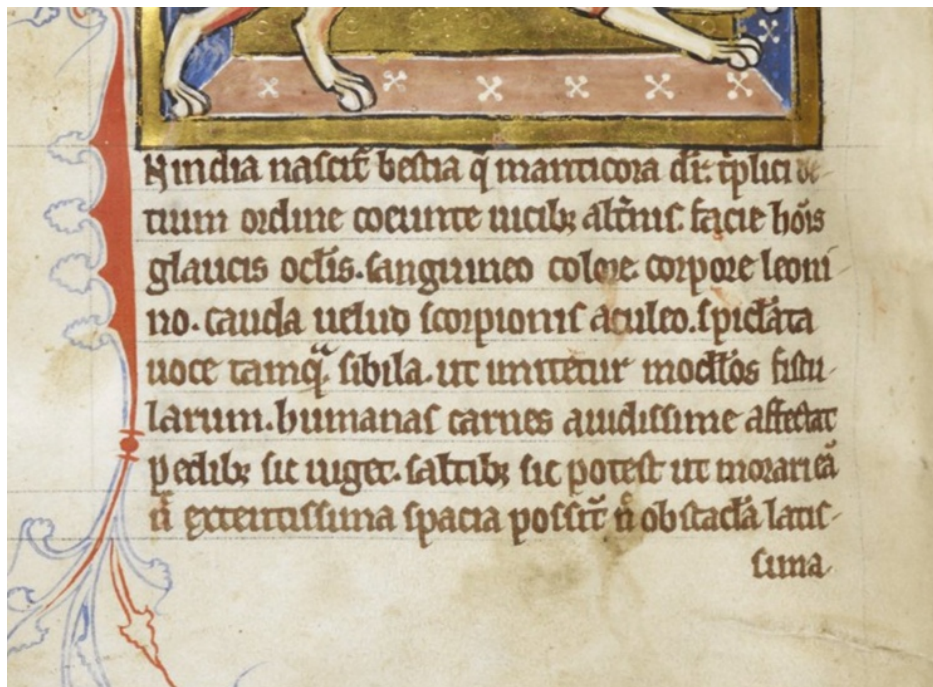 N india nascit᷑ bestia q̄ manticora dr̄. t̄plici de-
tium ordine coeunte uicibꝫ alt̄nis. facie hoīs
glaucis oclīs. sanguineo colore. corpore leoni
no. cauda uelud scorpionis aculeo. spiclāta
uoce tamqᷓ sibila. ut imitetur modlōs fistu-
larum. humanas carnes auidissime affectat
pedibꝫ sic uiget. saltibꝫ sic potest ut morari eā
n̄ extentissima spacia possīt n̄ obstaclā latis-
sima.